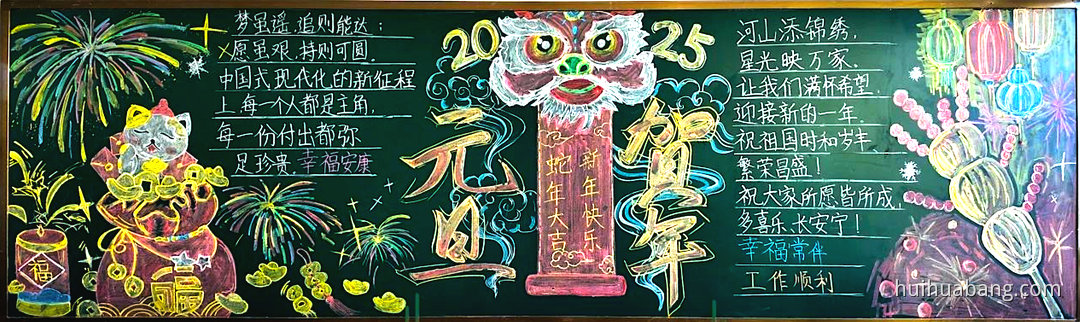 梦虽谣,追则能达;
愿虽艰,持则可圆.
中国式现代化的新征程
上,每个人都是主角,
每一份付出都弥
足珍贵,幸福安康
福
福
2025
元旦
贺年
新年快乐
蛇年大吉
河山添锦绣,
星光映万家,
让我们满怀希望,
迎接新的一年.
祝祖国时和岁丰、
繁荣昌盛!
祝大家所愿皆所成,
多喜乐,长安宁!
幸福常伴
工作顺利
Chuihuabang.com